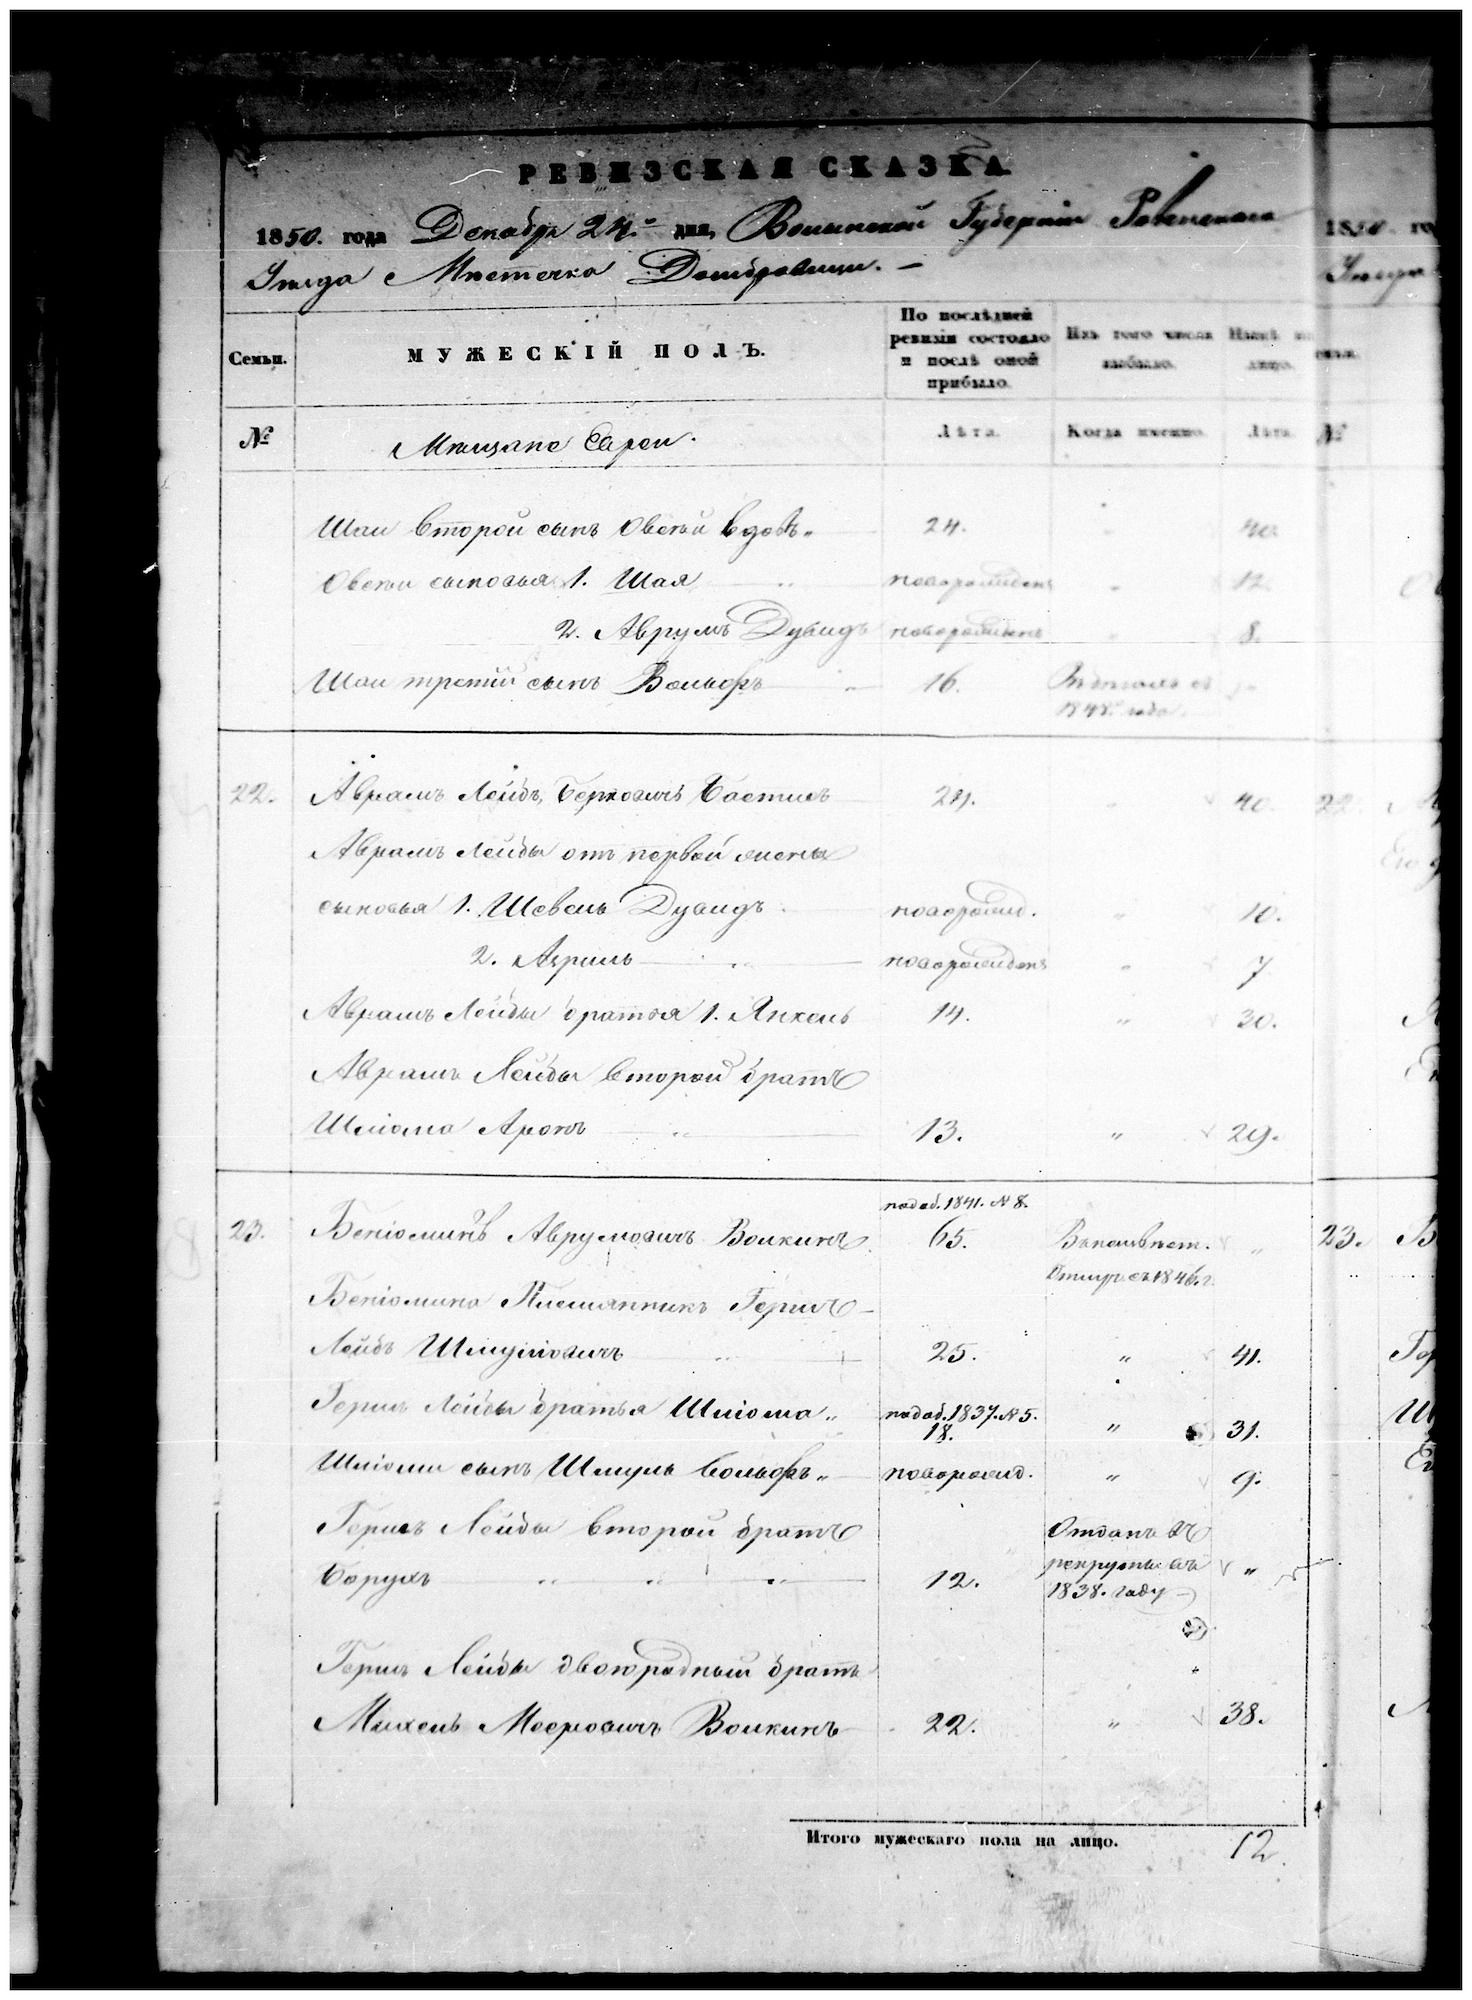 РЕВИЗСКАЯ СКАЗКА.
1850. года Декабря 24.го дня, Волынской Губерніи Ровенскаго
Уѣзда Мѣстечка Домбровицы. —
1850. го
Уѣзда
Семьи.
МУЖЕСКІЙ ПОЛЪ.
По послѣдней ревизіи состояло и послѣ оной прибыло.
Изъ того числа выбыло.
Нынѣ на лицо.
№
Мѣщане Евреи.
Лѣта.
Когда именно.
Лѣта.
№
Шаи второй сынъ Овсѣй вдовъ „ 24. „ 40.
Овсѣя сыновья 1. Шая „ новорожденъ „ 12.
2. Аврумъ Дувидъ новорожденъ „ 8.
Шаи третій сынъ Вольфъ „ 16. „
1848. года.
22. Аврамъ Лейбъ Берковичъ Бастисъ 24. „ 40. 22.
Аврамъ Лейбы отъ первой жены
сыновья 1. Шевель Дувидъ новорожд. „ 10.
2. Азриль „ новорожденъ „ 7.
Аврамъ Лейбы братья 1. Янкель 14. „ 30.
Аврамъ Лейбы второй братъ
Шліома Аронъ „ 13. „ 29.
по доб. 1841. № 8.
23. Беніоминъ Аврумовичъ Волкинъ 65. „ 23. Б
Умеръ съ 1846. г.
Беніомина Племянникъ Гершъ
Лейбъ Шмуйловичъ „ 25. „ 41. Гер
Гершъ Лейбы братья Шліома „ по доб. 1837. № 5. 18. „ 31. Ш
Шліомы сынъ Шмуль Вольфъ „ новорожд. „ 9. Ег
Гершъ Лейбы второй братъ Отданъ въ
Борухъ „ „ „ 12. рекруты въ 1838. году „
Гершъ Лейбы двоюродный братъ
Михель Мееровичъ Волкинъ 22. „ 38.
Итого мужескаго пола на лицо. 12.